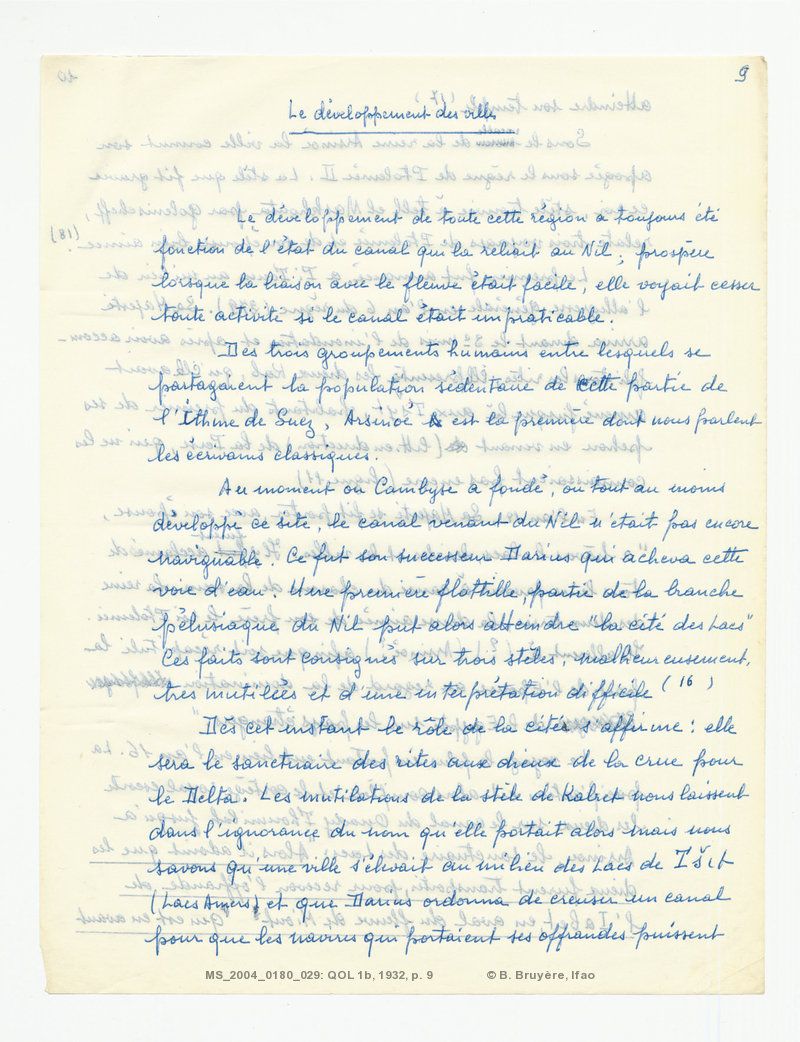 9
Le développement des villes
Le développement de toute cette région a toujours été
(18)
fonction de l'état du canal qui la reliait au Nil ; prospère
lorsque la liaison avec le fleuve était facile, elle voyait cesser
toute activité si le canal était impraticable.
Des trois groupements humains entre lesquels se
partageaient la population sédentaire de cette partie de
l'Isthme de Suez, Arsinoé est la première dont nous parlent
les écrivains classiques.
Au moment où Cambyse a fondé, ou tout au moins
développé ce site, le canal venant du Nil n'était pas encore
naviguable. Ce fut son successeur Darius qui acheva cette
voie d'eau. Une première flottille, partie de la branche
pélusiaque du Nil put alors atteindre "la cité des Lacs"
Ces faits sont consignés sur trois stèles, malheureusement,
très mutilées et d'une interprétation difficile (16)
Dès cet instant le rôle de la cités s'affirme : elle
sera le sanctuaire des rites aux dieux de la crue pour
le Delta. Les mutilations de la stèle de Kabret nous laissent
dans l'ignorance du nom qu'elle portait alors mais nous
savons qu'une ville s'élevait au milieu des Lacs de
(Lacs Amers) et que Darius ordonna de creuser un canal
pour que les navires qui portaient ses offrandes puissent
MS_2004_0180_029: QOL 1b, 1932, p. 9 © B. Bruyère, Ifao